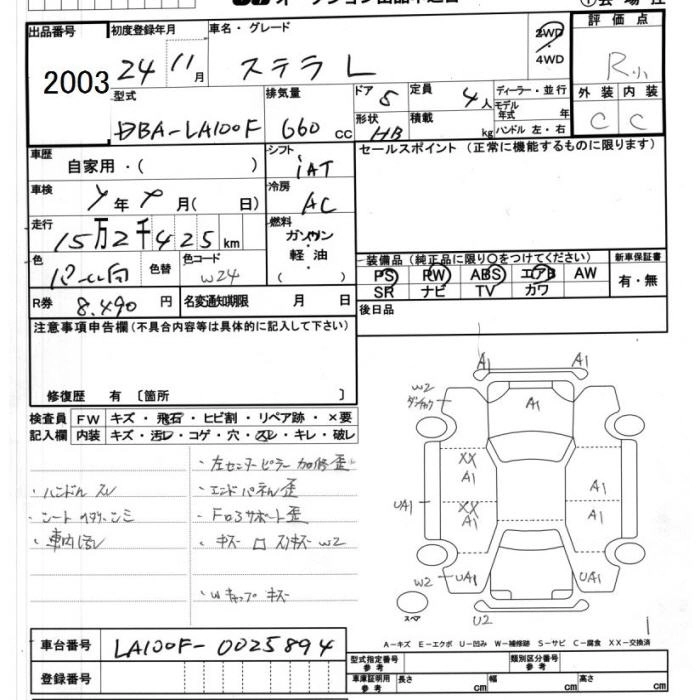 オークション出品申込書
出品番号 初度登録年月 車名・グレード 2WD・4WD 評価点
2003 24 11月 ステラ L R小
型式 排気量 ドア 5 定員 4人 ディーラー・並行 外装 内装
DBA-LA100F 660cc 形状 HB 積載 kg モデル年式 年 ハンドル 左・右 C C
車歴 シフト セールスポイント (正常に機能するものに限ります)
自家用・( ) IAT
車検 年 月( 日) 冷房 AC
走行 15万2千425km 燃料 ガソリン 軽油 ( )
色 色替 色コード W24
装備品(純正品に限り〇をつけてください) 新車保証書
PS PW ABS エアB AW 有・無
SR ナビ TV カワ
R券 8.490円 名変通知期限 月 日 後日品
注意事項申告欄(不具合内容等は具体的に記入して下さい)
修復歴 有 〔箇所 〕
検査員 FW キズ・飛石・ヒビ割・リペア跡・×要
記入欄 内装 キズ・汚レ・コゲ・穴・スレ・キレ・破レ
・左センターピラー加修歪
・ハンドル スレ ・エンドパネル歪
・シート ・F サポート歪
・車内汚レ ・キズ W2
・Wキャップ キズ
A1 A1
W2 A1
XX
A1 A1
UA1 XX A1
A1
W2 UA1 UA1
スペア U2
A-キズ E-エクボ U-凹み W-補修跡 S-サビ C-腐食 XX-交換済
車台番号 LA100F-0025894
型式指定番号 参考 類別区分番号 参考
登録番号 車庫証明用 参考 長さ cm 幅 cm 高さ cm